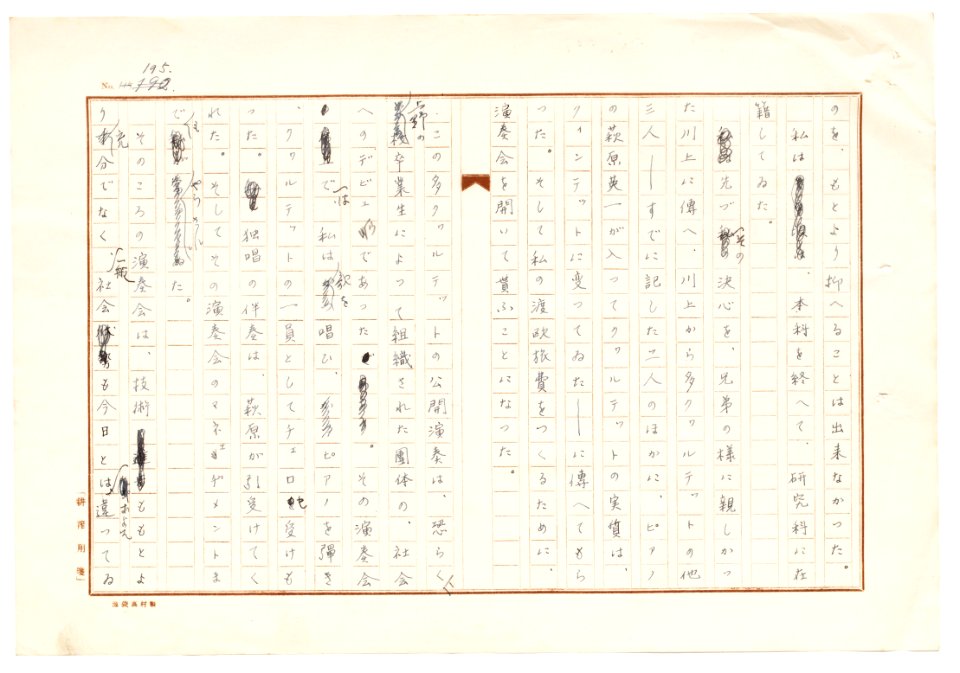 No. 195.
のを、もとより抑へることは出来なかつた。
私は 本科を終へて、研究科に在
籍してゐた。
先づ その 決心を、兄弟の様に親しかつ
た川上に傳へ、川上から多クワルテットの他
三人――すでに記した二人のほかに、ピアノ
の萩原英一が入つてクワルテットの実質は、
クインテットに変つてゐた――に傳へてもら
つた。そして私の渡欧旅費をつくるために、
演奏会を開いて貰ふことになつた。
この多クワルテットの公開演奏は、恐らく
上野の卒業生によつて組織された團体の、社会
へのデビューであつた。その演奏会
では 私は 歌を 唱ひ、ピアノを彈き
、クワルテットの一員としてチェロも受けも
つた。独唱の伴奏は、萩原が引受けてく
れた。そしてその演奏会のマネヂメントま
で やらされた。
そのころの演奏会は、技術 ももとよ
り充分でなく 一般社会も今日とは 違つてゐ